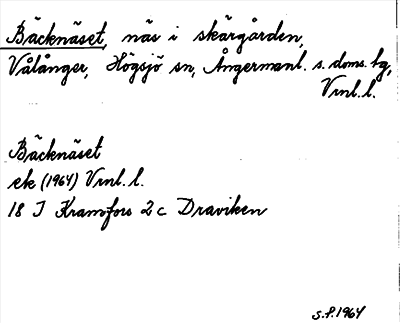 Bäcknäset, näs i skärgården,
Vålånger, Högsjö sn, Ångermanl. s. doms. bg,
Vrnl. l.
Bäcknäset
ek (1964) Vrnl. l.
18 I Kramfors 2 c Draviken
S.P. 1964